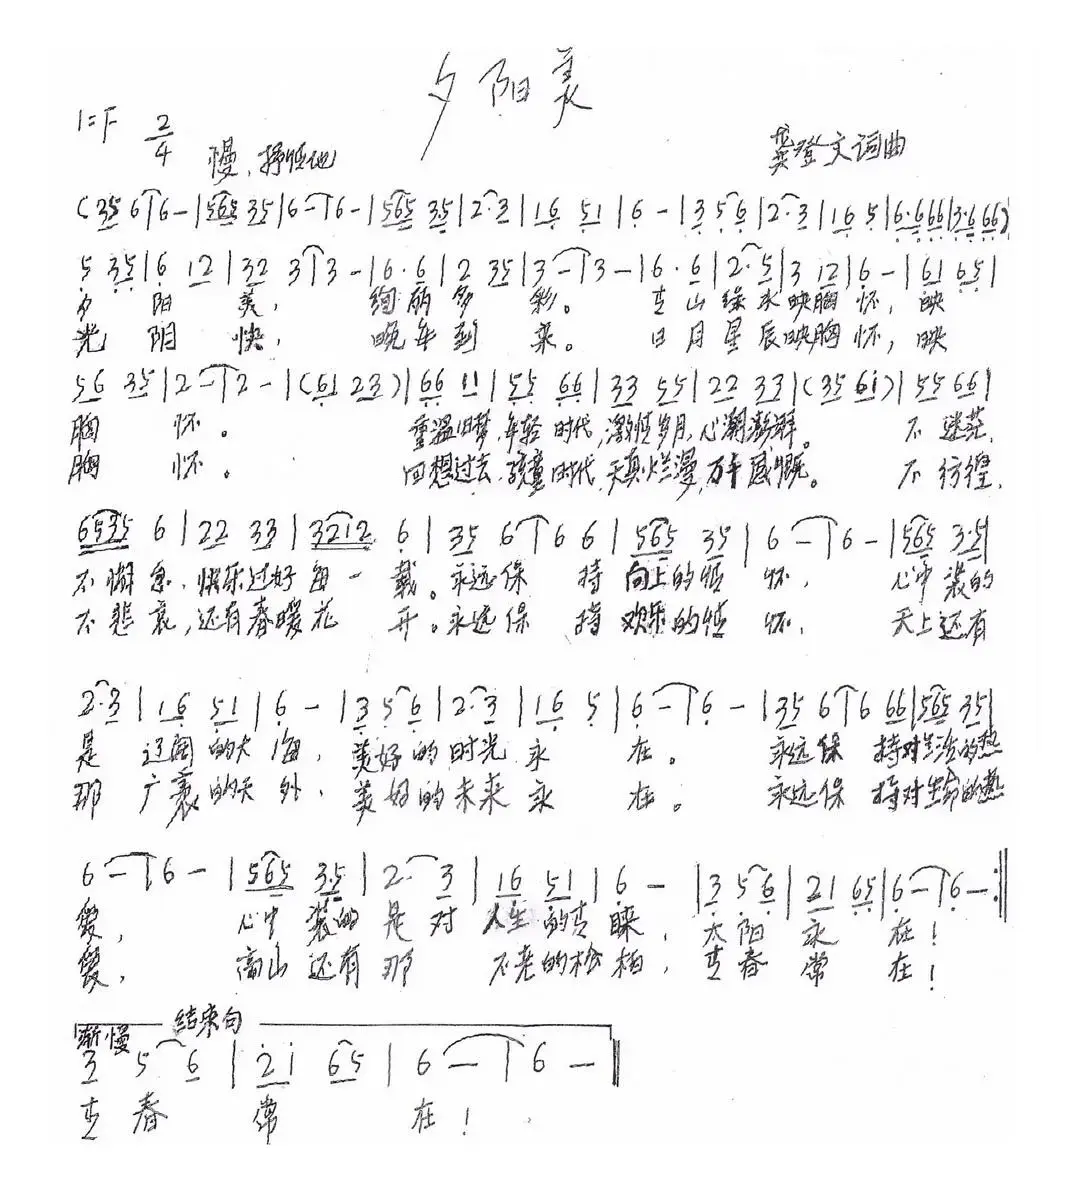 夕阳美
1=F 2/4
慢、抒情地
龚登文词曲
(35 6|6 - |565 35|6 - |6 - |565 35|2·3|16 51|6 - |3 56|2·3|16 5|6·666|3·666)
5 35|6 12|32 3|3 - |6·6|2 35|3 - |3 - |6·6|2·5|3 12|6 - |61 65|
夕 阳 美, 绚丽多 彩。 青山绿水映胸怀, 映
光 阴 快, 晚年到 来。 日月星辰映胸怀, 映
56 35|2 - |2 - |(61 23)|66 11|55 66|33 55|22 33|(35 6i)|55 66|
胸 怀。 重温旧梦,年轻时代,激情岁月,心潮澎湃。 不迷茫,
胸 怀。 回想过去,孩童时代,天真烂漫,万千感慨。 不彷徨,
6535 6|22 33|3212 6|35 6|6 6|565 35|6 - |6 - |565 3·5|
不懈怠,快乐过好每一载。永远保 持向上的情怀, 心中装的
不悲哀,还有春暖花 开。永远保 持欢乐的情怀, 天上还有
2·3|16 51|6 - |3 56|2·3|16 5|6 - |6 - |35 6|6 66|565 35|
是 辽阔的大海, 美好的时光永 在。 永远保 持对生活的热
那 广袤的天外, 美好的未来永 在。 永远保 持对生命的热
6 - |6 - |565 3·5|2· 3|16 51|6 - |3 56|21 65|6 - |6 - :||
爱, 心中装的是对人生的青睐, 太阳永 在!
爱, 高山还有那 不老的松柏, 青春常 在!
渐慢 结束句
3 5 6|2i 65|6 - |6 - ||
青春 常 在!